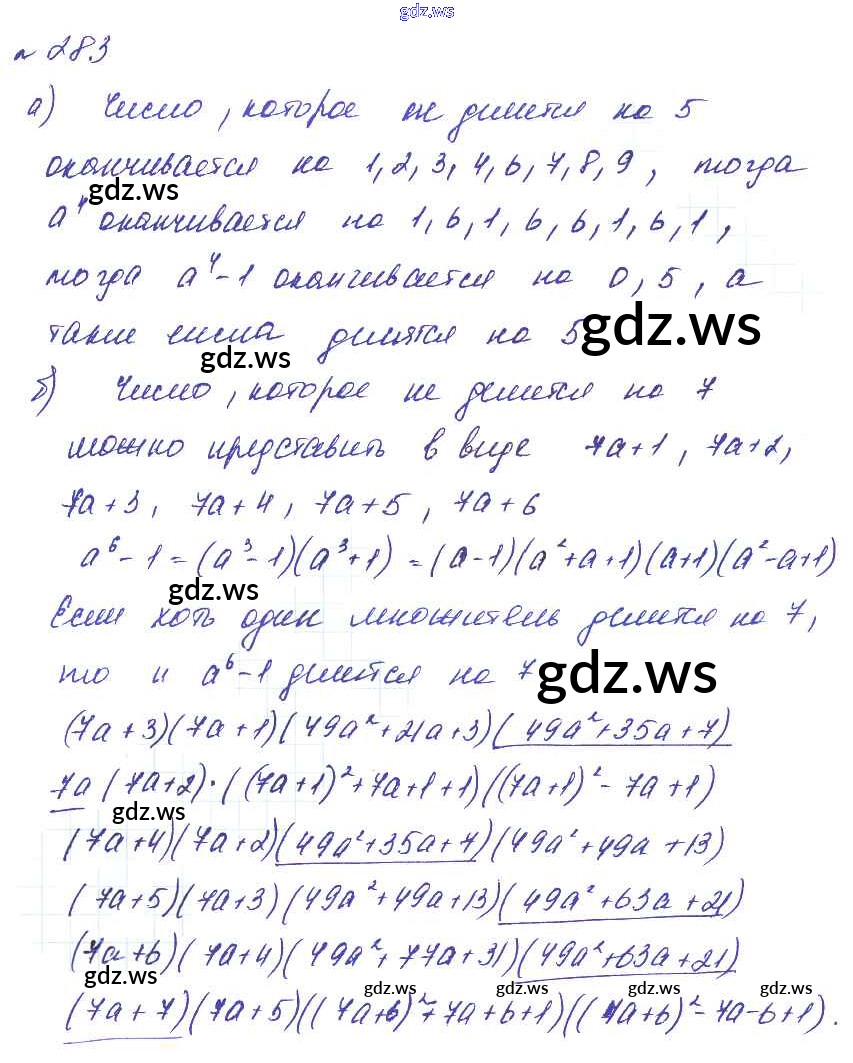 gdz.ws
№ 283
а) Число, которое не делится на 5
оканчивается на 1,2,3,4,6,7,8,9, тогда
gdz.ws
a⁴ оканчивается на 1,6,1,6,6,1,6,1,
тогда a⁴-1 оканчивается на 0,5, а
такие числа делятся на 5
gdz.ws
gdz.ws
б) Число, которое не делится на 7
можно представить в виде 7a+1, 7a+2,
7a+3, 7a+4, 7a+5, 7a+6
a⁶-1=(a³-1)(a³+1)=(a-1)(a²+a+1)(a+1)(a²-a+1)
gdz.ws
Если хоть один множитель делится на 7,
то и a⁶-1 делится на 7
gdz.ws
(7a+3)(7a+1)(49a²+21a+3)(49a²+35a+7)
7a(7a+2)·((7a+1)²+7a+1+1)((7a+1)²-7a+1)
gdz.ws
(7a+4)(7a+2)(49a²+35a+7)(49a²+49a+13)
(7a+5)(7a+3)(49a²+49a+13)(49a²+63a+21)
(7a+6)(7a+4)(49a²+77a+31)(49a²+63a+21)
gdz.ws
gdz.ws gdz.ws gdz.ws
(7a+7)(7a+5)((7a+6)²+7a+6+1)((7a+6)²-7a-6+1).